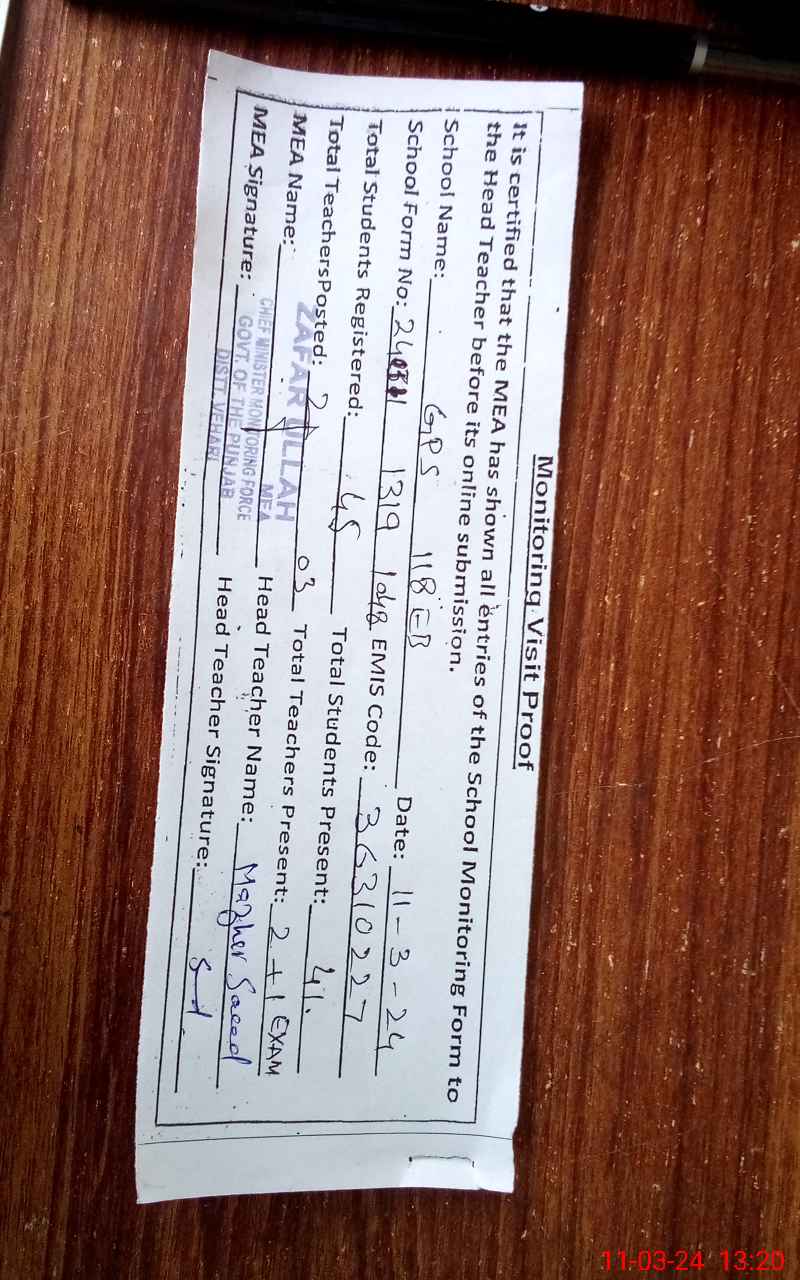 Monitoring Visit Proof
It is certified that the MEA has shown all entries of the School Monitoring Form to
the Head Teacher before its online submission.
School Name: GPS 118 EB Date: 11-3-24
School Form No: 1319 1048 EMIS Code: 36310227
Total Students Registered: 45 Total Students Present: 41.
Total TeachersPosted: 03 Total Teachers Present: 2+1 EXAM
MEA Name: Head Teacher Name: Mazher Saeed
MEA Signature: Head Teacher Signature:
ZAFAR ULLAH
MEA
CHIEF MINISTER MONITORING FORCE
GOVT. OF THE PUNJAB
DISTT. VEHARI
11-03-24 13:20